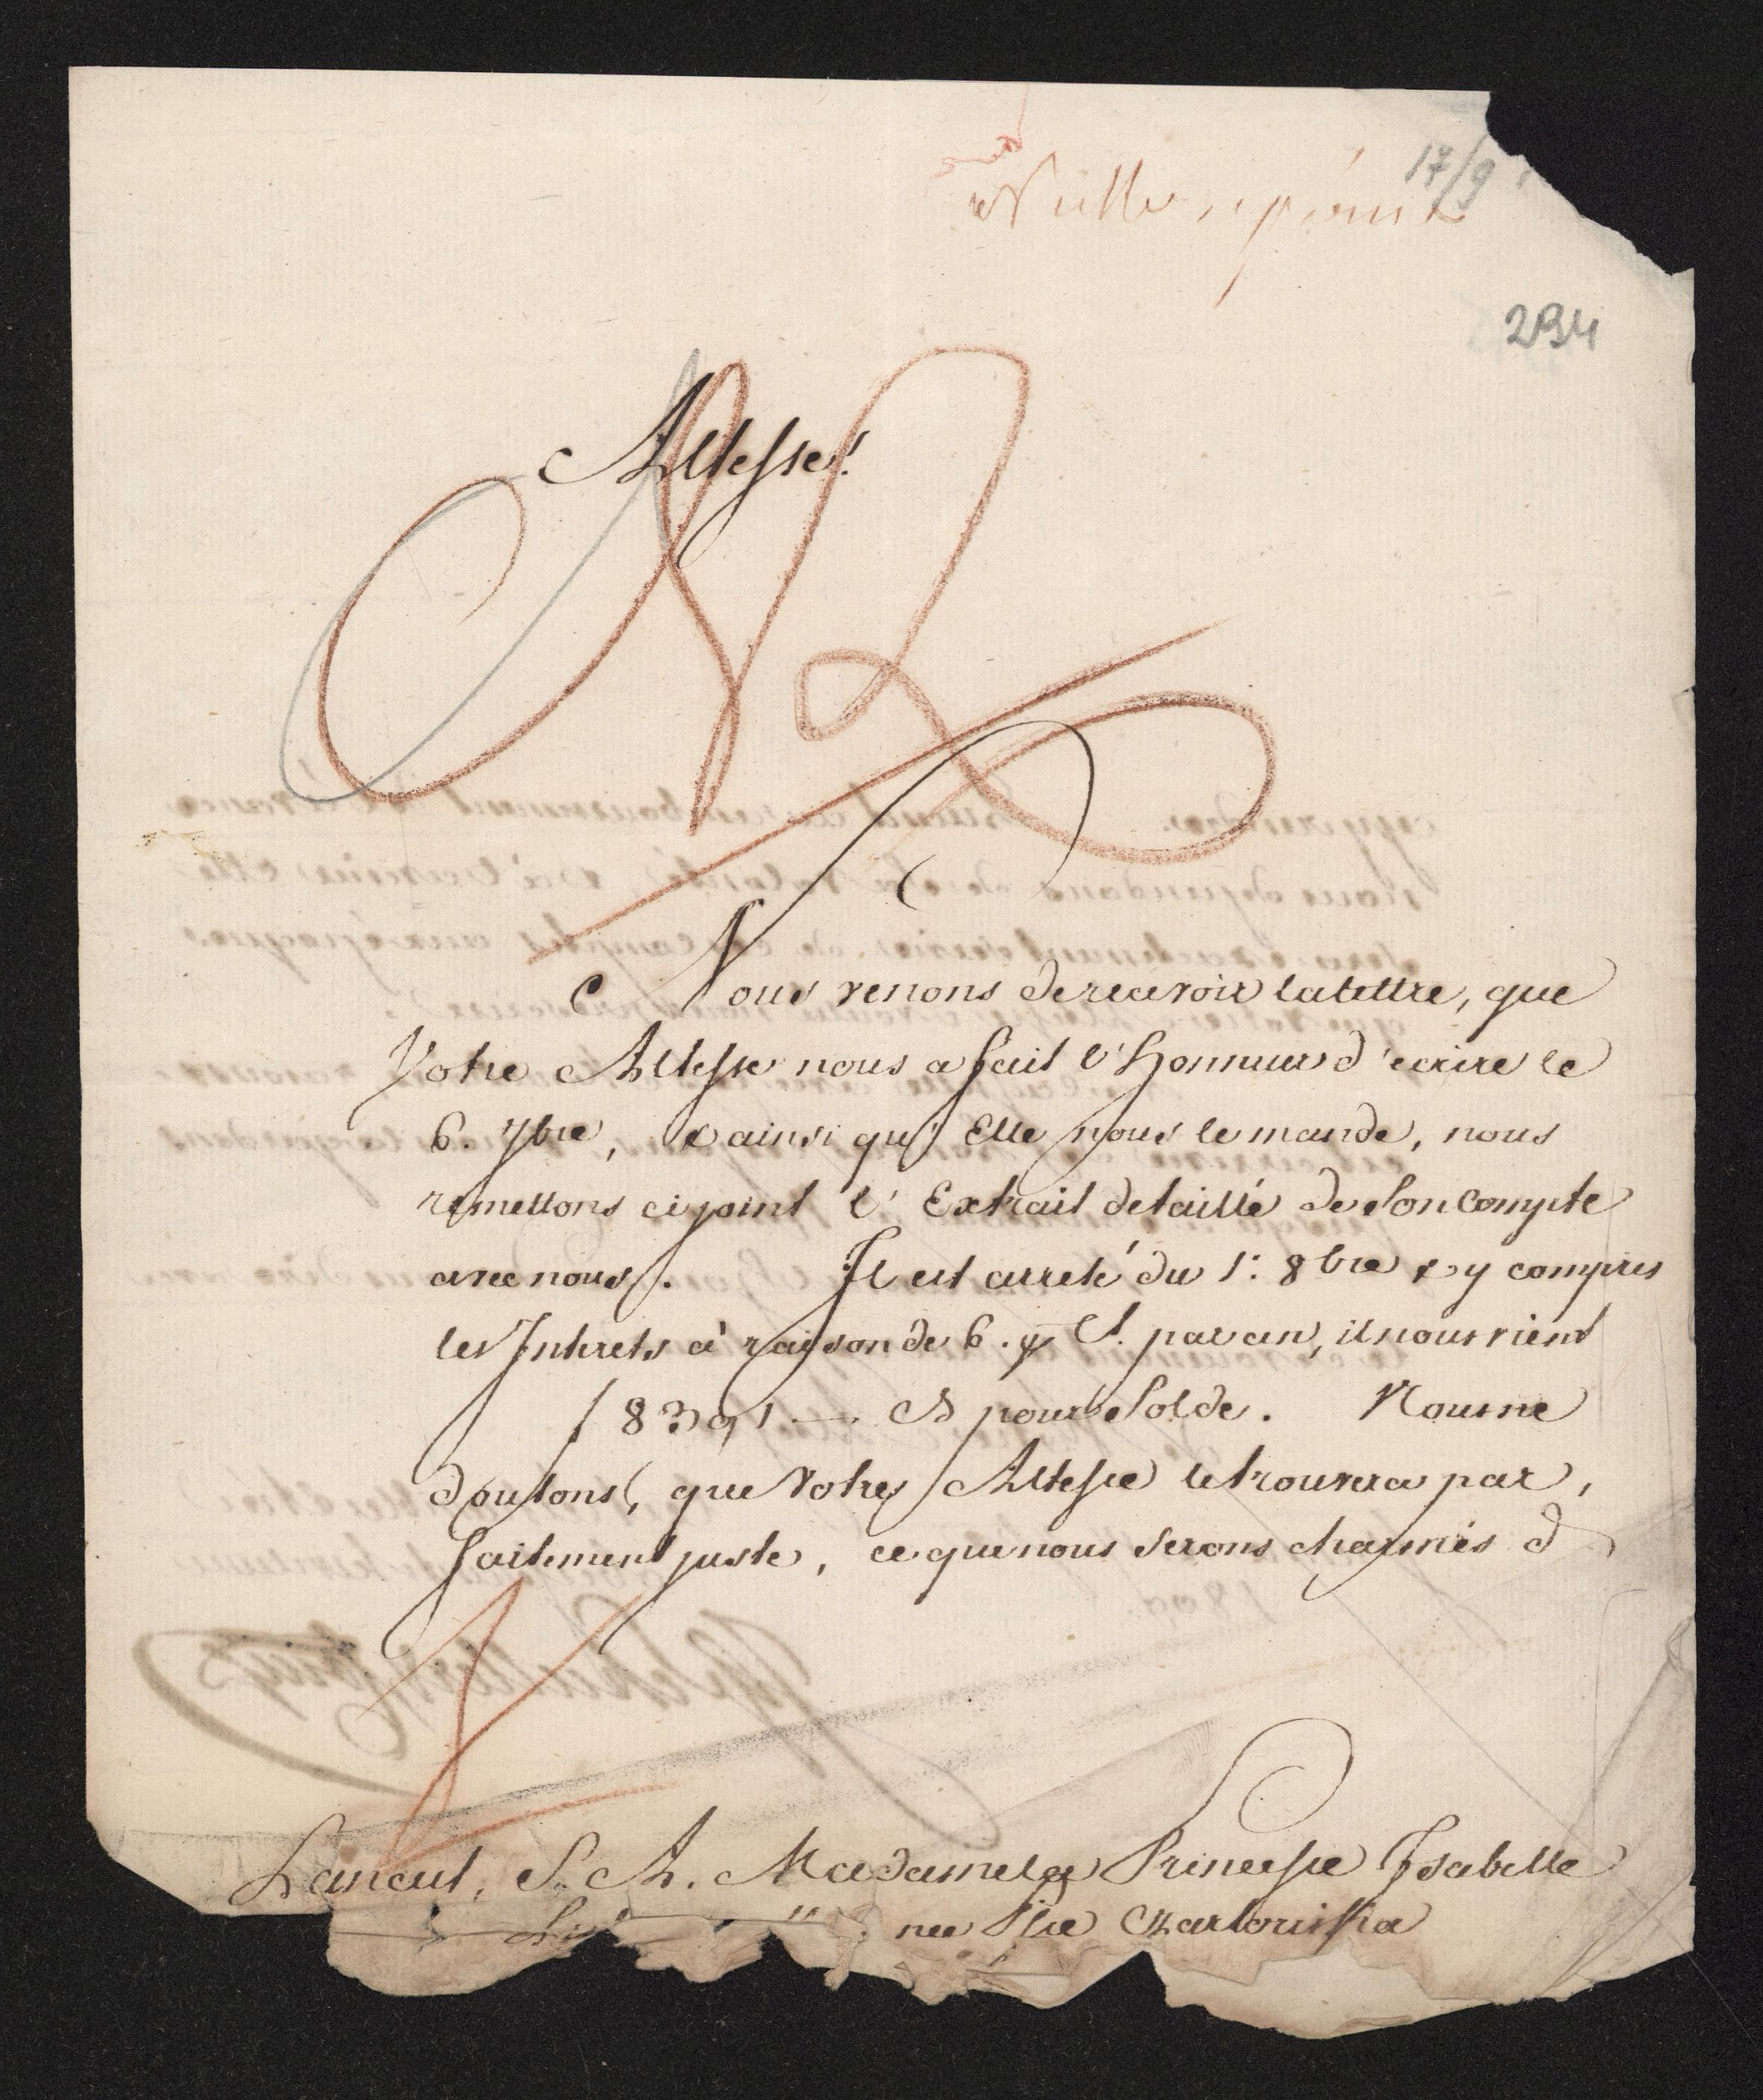 17/9
294
Altesse!
Nous venons de recevoir la lettre, que
Votre Altesse nous a fait l'Honneur d'ecrire le
6. 7bre, & ainsi qu' Elle nous le mande, nous
remettons ci joint l' Extrait detaillé de Son Compte
avec nous. Il est arreté du 1: 8bre & y compris
les Interets à raison de 6. p C. par an, il nous vient
f 8391 — pour Solde. Nous ne
doutons, que Votre Altesse le trouvera par,
faitement juste, ce que nous serons charmés d
Lancut, S. A. Madame la Princesse Isabelle
née Psse Czartoriska